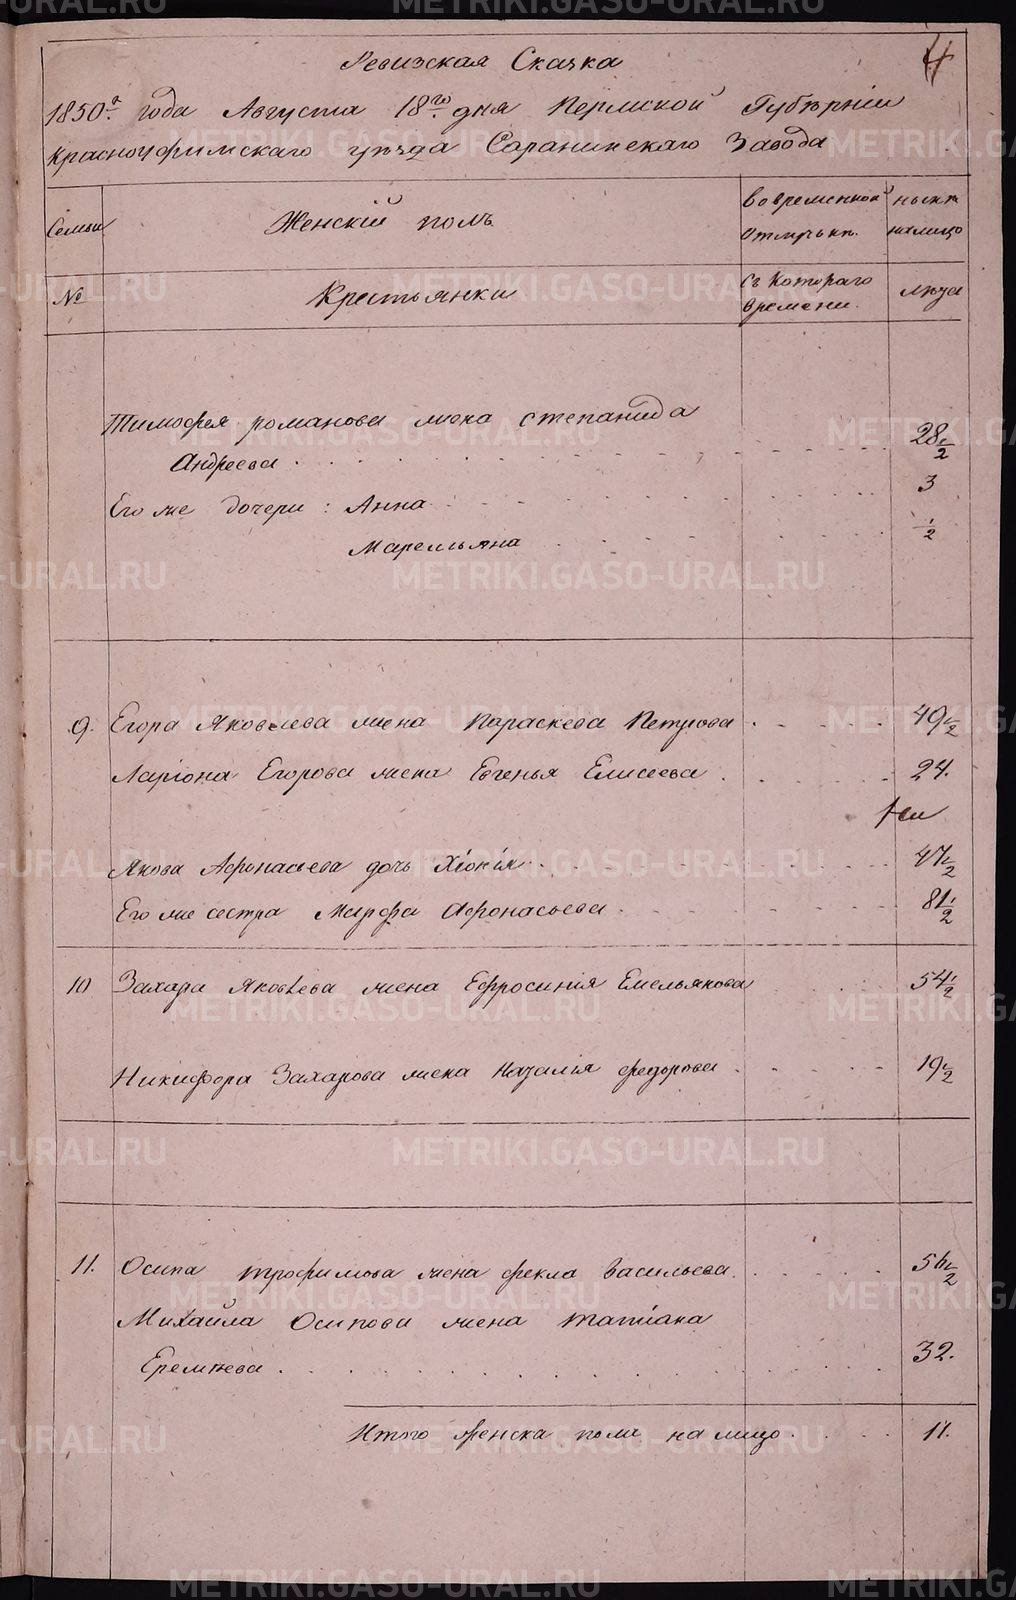 4
Ревизская Сказка
1850го года Августа 18го дня Пермской Губерніи
Красноуфимскаго уезда Саранинскаго Завода
Семьи Женскій полъ Во временной отлучке. ныне на лицо
№ Крестьянки съ Котораго времени. лета
Тимофея романова жена степанида
Андреева . 28 1/2
Его же дочери : Анна 3
Маремьяна 1/2
9. Егора Яковлева жена Параскева Петрова 49 1/2
Ларіона Егорова жена Евгенья Елисеева 24.
Якова Афонасьева дочь Хіонія 47 1/2
Его же сестра Марфа Афонасьева 81 1/2
10 Захара Яковлева жена Ефросинія Емельянова 54 1/2
Никифора Захарова жена Наталія федорова 19 1/2
11. Осипа трофимова жена фекла Васильева. 56 1/2
Михайла Осипова жена татіана
Еремеева . 32.
Итого женска пола на лицо . 11.
METRIKI.GASO-URAL.RU